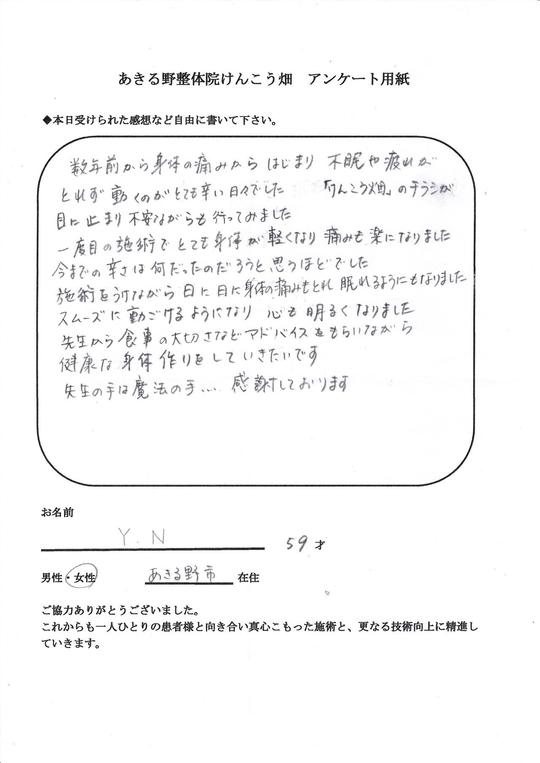 あきる野整体院けんこう畑　アンケート用紙
◆本日受けられた感想など自由に書いて下さい。
数年前から身体の痛みから はじまり 不眠や疲れが
とれず 動くのがとても辛い日々でした 「けんこう畑」のチラシが
目に止まり 不安ながらも行ってみました
一度目の施術で とても身体が軽くなり 痛みも楽になりました
今までの辛さは何だったのだろうと思うほどでした
施術をうけながら 日に日に身体の痛みもとれ 眠れるようにもなりました
スムーズに動ごけるようになり 心も明るくなりました
先生から食事の大切さなどアドバイスをもらいながら
健康な身体作りをしていきたいです
先生の手は魔法の手... 感謝しております
お名前
Y.N
59才
男性・女性 あきる野市 在住
ご協力ありがとうございました。
これからも一人ひとりの患者様と向き合い真心こもった施術と、更なる技術向上に精進し
ていきます。